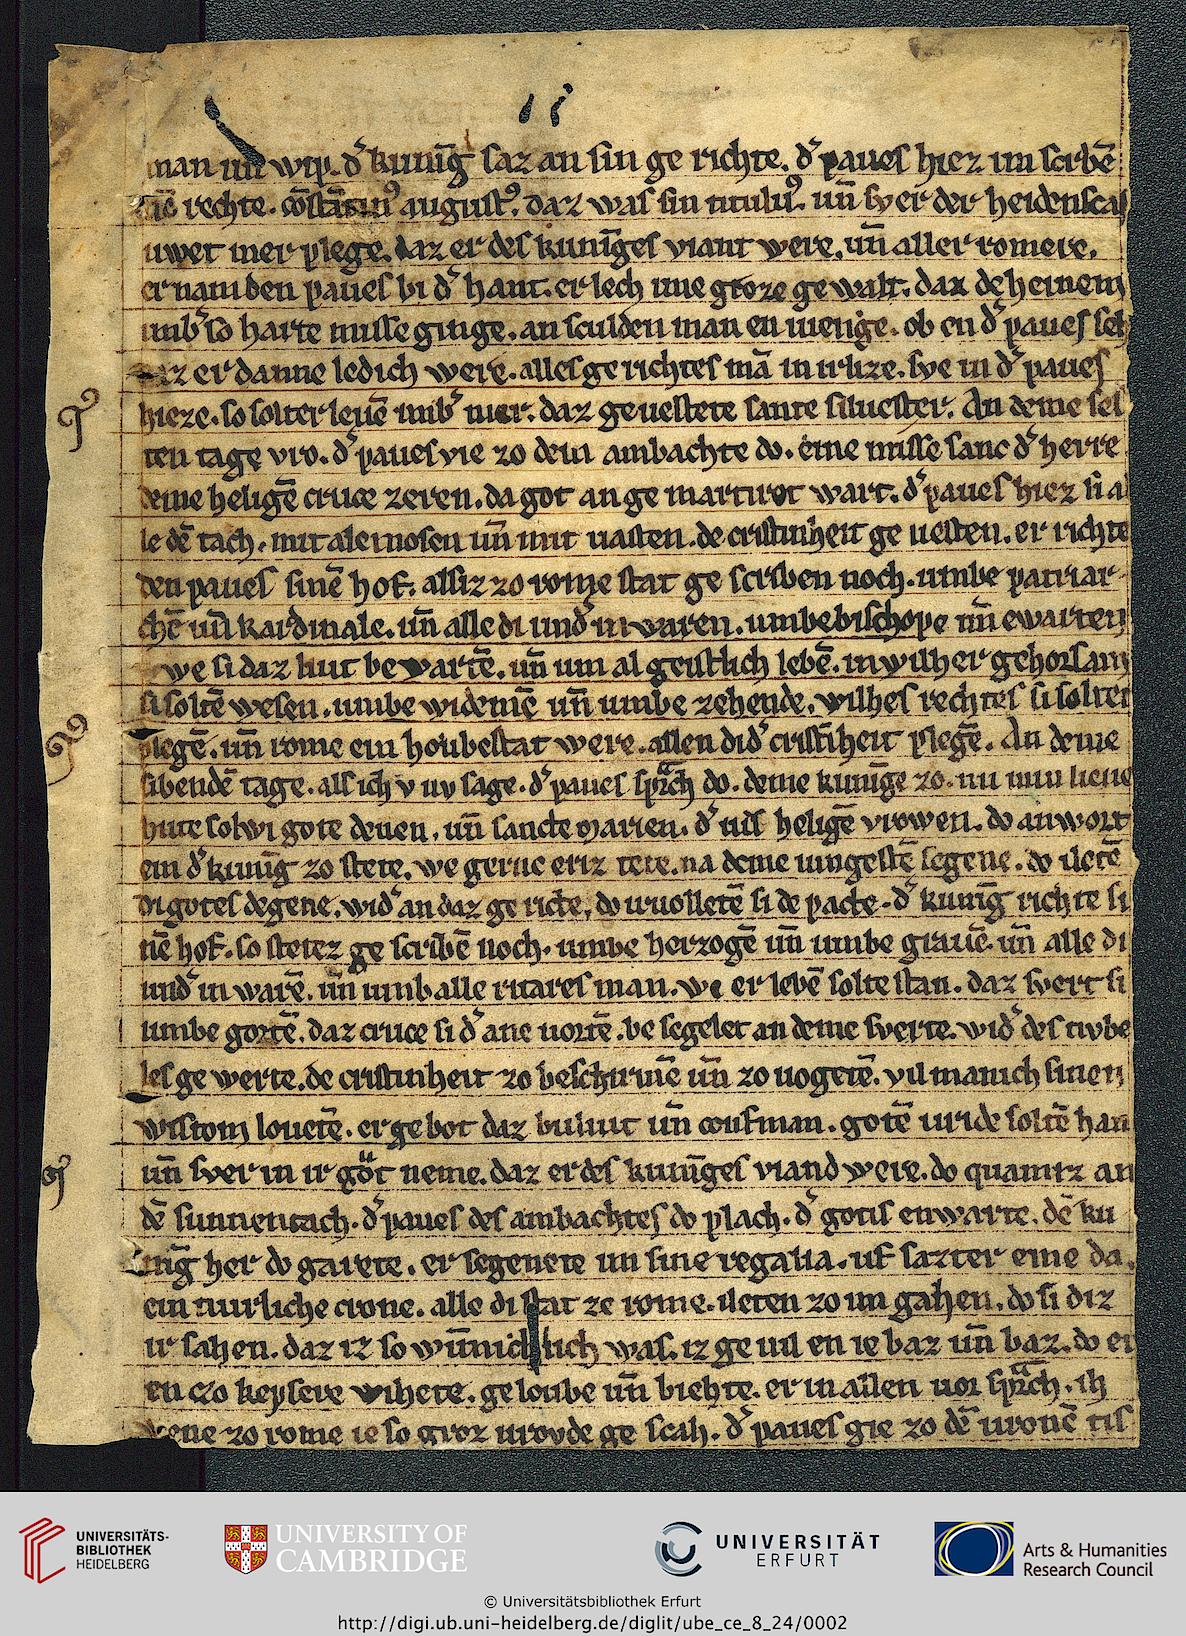 man un̄ wip. dˀ kuniḡ saz an sin ge richte. dˀ paues hiez im scribē
rechte. augustˀ. daz was sin titulus. un̄ sver der heidensca
uwet mer plege. daz er des kunīges viant were. un̄ aller romere.
er nam den paues bi dˀ hant. er lech ime groze ge walt. daz deheinem
umbˀ so harte misse ginge. an sculden man en uienge. ob en dˀ paues
er danne ledich were. alles ge richtes mā in irlize. sve in dˀ paues
hieze. so solter leuē imbˀ mer. daz geuestete sante siluester. An deme ses
ten tage vro. dˀ paues vie zo dem ambachte do. eine misse sanc dˀ herre
deme heligē cruce zeren. da got an ge martirot wart. dˀ paues hiez si a
le dē tach. mit alemosen un̄ mit uasten. de cristinheit ge uesten. er richte
den paues sinē hof. alsiz zo rome stat ge scriben noch. umbe patriar
chē un̄ kardinale. un̄ alle di undˀ in waren. umbe bischope un̄ ewarten
we si daz liut be wartē. un̄ um al geistlich lebē. in wilher gehorsam
si soltē wesen. umbe widemē un̄ umbe zehende. wilhes rechtes si solten
plegē. un̄ rome ein houbestat were. allen di dˀ cristīheit plegē. An deme
sibendē tage. als ich v nv sage. dˀ paues sprach do. deme kunīge zo. nu min lieue
hute solwi gote denen. un̄ sancte marien. dˀ uil heligē vrowen. do anwort
ein dˀ kunīg zo stete. we gerne er iz tete. na deme iungestē segene. do iletē
di gotes degene. widˀ an daz ge richte. do uuolletē si de pacte. dˀ kunīg richte si
nē hof. so stetez ge scribē noch. umbe herzogē un̄ umbe grauē. un̄ alle di
undˀ in warē. un̄ umb alle ritares man. we er lebē solte stan. daz svert si
umbe gortē. daz cruce si dˀ ane uortē. be segelet an deme sverte. widˀ des tiube
les ge werte. de cristinheit zo beschirmē un̄ zo uogetē. vil manich sinen
wistom louetē. er ge bot daz buliut un̄ coufman. gotē uride soltē han
un̄ sver in ir gōt neme. daz er des kunīges viand were. do quam iz an
dē sunnentach. dˀ paues des ambachtes do plach. dˀ gotis enwarte. dē ku
nīg her do garete. er segenete im sine regalia. uf sazter eme da.
ein tuirliche crone. alle di stat ze rome. ileten zo im gahen. do si diz
ir sahen. daz iz so wīnich lich was. iz ge uil en ie baz un̄ baz. do er
en czo keysere wihete. geloube un̄ biehte. er in allen uor sprach. ih
wene zo rome ie so groz urovde ge scah. dˀ paues gie zo dē uronē tis
UNIVERSITÄTS-
BIBLIOTHEK
HEIDELBERG
UNIVERSITY OF
CAMBRIDGE
UNIVERSITÄT
ERFURT
Arts & Humanities
Research Council
© Universitätsbibliothek Erfurt
http://digi.ub.uni-heidelberg.de/diglit/ube_ce_8_24/0002